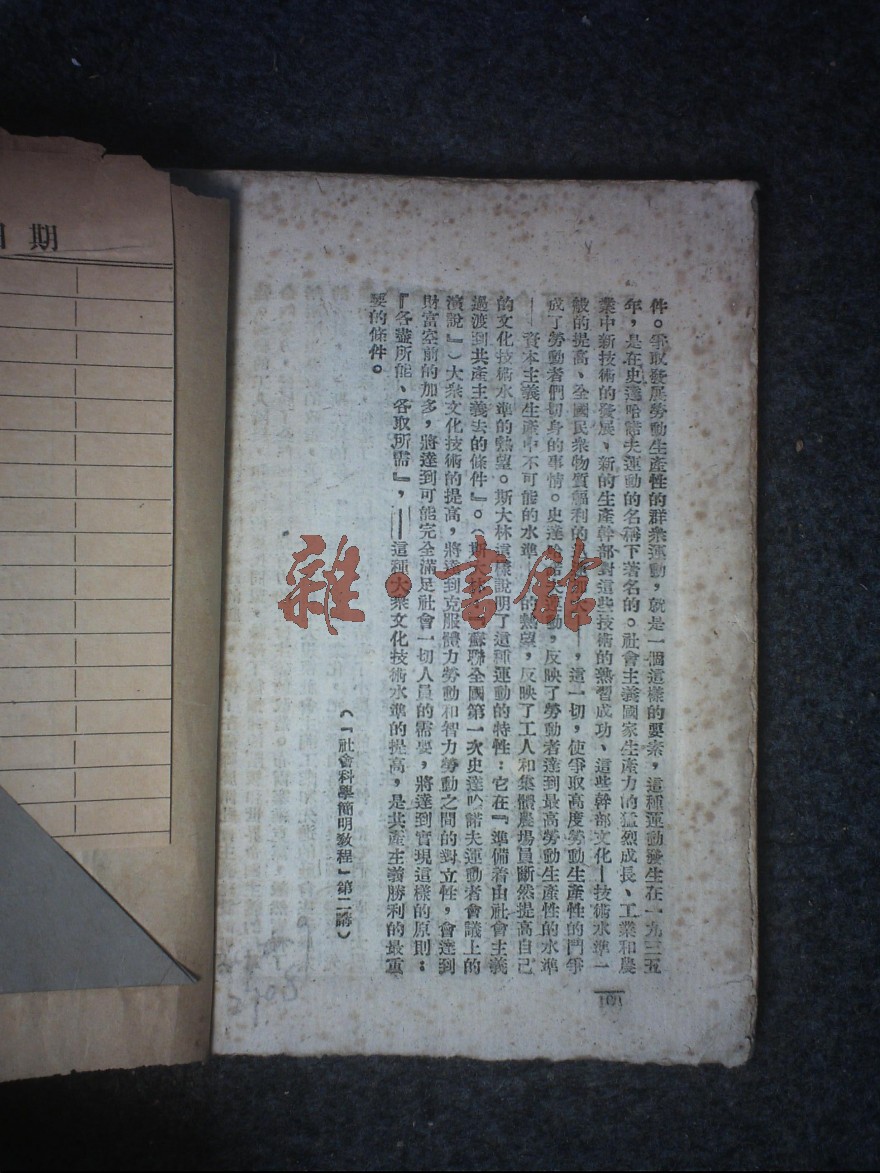 件。爭取發展勞動生產性的群衆運動，就是一個這樣的要素，這種運動發生在一九三五
年，是在史達哈諾夫運動的名稱下著名的。社會主義國家生產力的猛烈成長、工業和農
業中新技術的發展、新的生產幹部對這些技術的熟習成功、這些幹部文化—技術水準一
般的提高、全國民衆物質福利的，這一切，使爭取高度勞動生產性的鬥爭
成了勞動者們切身的事情。史達運動，反映了勞動者達到最高勞動生產性的水準
——資本主義生產中不可能的水準——的熱望，反映了工人和集體農場員斷然提高自己
的文化技術水準的熱望。斯大林這樣說明了這種運動的特性：它在『準備着由社會主義
過渡到共產主義去的條件』。（斯蘇聯全國第一次史達哈諾夫運動者會議上的
演說』）大衆文化技術的提高，將達到克服體力勞動和智力勞動之間的對立性，會達到
財富空前的加多，將達到可能完全滿足社會一切人員的需要，將達到實現這樣的原則：
『各盡所能、各取所需』，——這種大衆文化技術水準的提高，是共產主義勝利的最重
要的條件。
（『社會科學簡明教程』第二講）
期
雜·書館